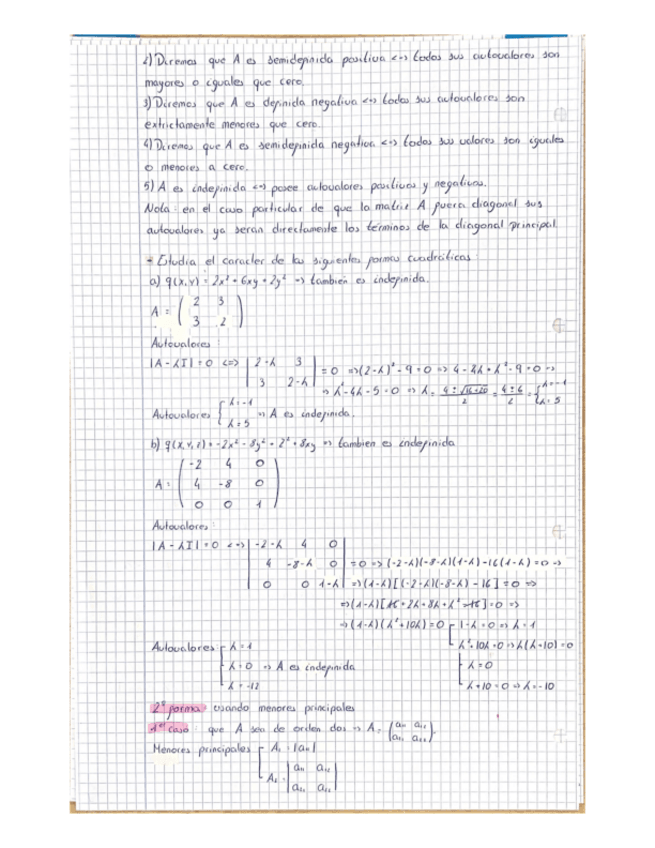 2) Diremos que A es semidefinida positiva <=> todos sus autovalores son
mayores o iguales que cero.
3) Diremos que A es definida negativa <=> todos sus autovalores son
extrictamente menores que cero.
4) Diremos que A es semidefinida negativa <=> todos sus valores son iguales
o menores a cero.
5) A es indefinida <=> posee autovalores positivos y negativos.
Nota: en el caso particular de que la matriz A fuera diagonal sus
autovalores ya seran directamente los términos de la diagonal principal
- Estudia el caracter de las siguientes formas cuadráticas:
a) q(x,y) = 2x² + 6xy + 2y² => tambien es indefinida.
A = ( 2 3
3 2 )
Autovalores:
|A - λI| = 0 <=> | 2-λ 3
3 2-λ | = 0 => (2-λ)² - 9 = 0 => 4 - 4λ + λ² - 9 = 0 =>
=> λ² - 4λ - 5 = 0 => λ = (4 ± √16+20)/2 = (4 ± 6)/2 = { λ = -1
λ = 5
Autovalores { λ = -1
λ = 5 => A es indefinida.
b) q(x,y,z) = -2x² - 8y² + z² + 8xy => tambien es indefinida
A = ( -2 4 0
4 -8 0
0 0 1 )
Autovalores:
|A - λI| = 0 <=> | -2-λ 4 0
4 -8-λ 0 | = 0 => (-2-λ)(-8-λ)(1-λ) - 16(1-λ) = 0 =>
0 0 1-λ | => (1-λ)[(-2-λ)(-8-λ) - 16] = 0 =>
=> (1-λ)[16 + 2λ + 8λ + λ² - 16] = 0 =>
=> (1-λ)(λ² + 10λ) = 0 [ 1-λ = 0 => λ = 1
λ² + 10λ = 0 => λ(λ+10) = 0
[ λ = 0
λ + 10 = 0 => λ = -10
Autovalores [ λ = 1
λ = 0 => A es indefinida
λ = -12
2ª forma: usando menores principales
1er caso: que A sea de orden dos => A = (a₁₁ a₁₂
a₂₁ a₂₂).
Menores principales [ A₁ = |a₁₁|
A₂ = | a₁₁ a₁₂
a₂₁ a₂₂ |